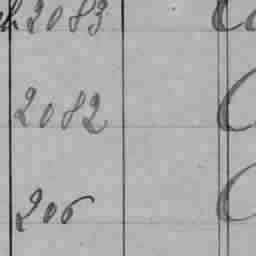 2083
2082
206